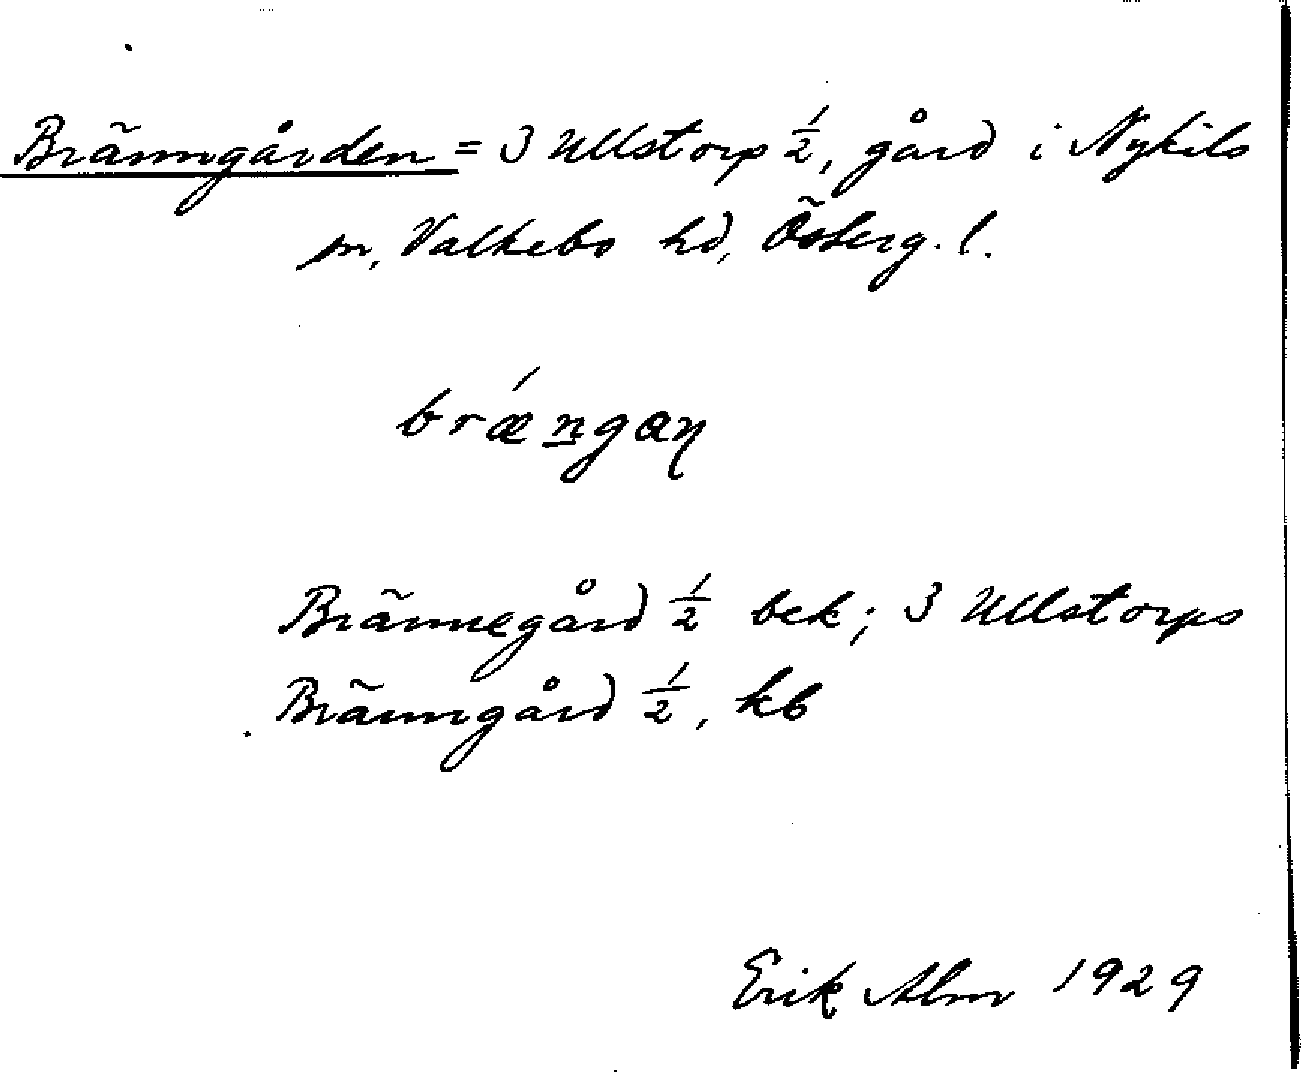 Bränngården = 3 Ullstorp 1/2, gård i Nykils
sn, Valkebo hd, Österg. l.
brængaṇ
Brännegård 1/2 bek; 3 Ullstorps
Bränngård 1/2, kb
Erik Alm 1929